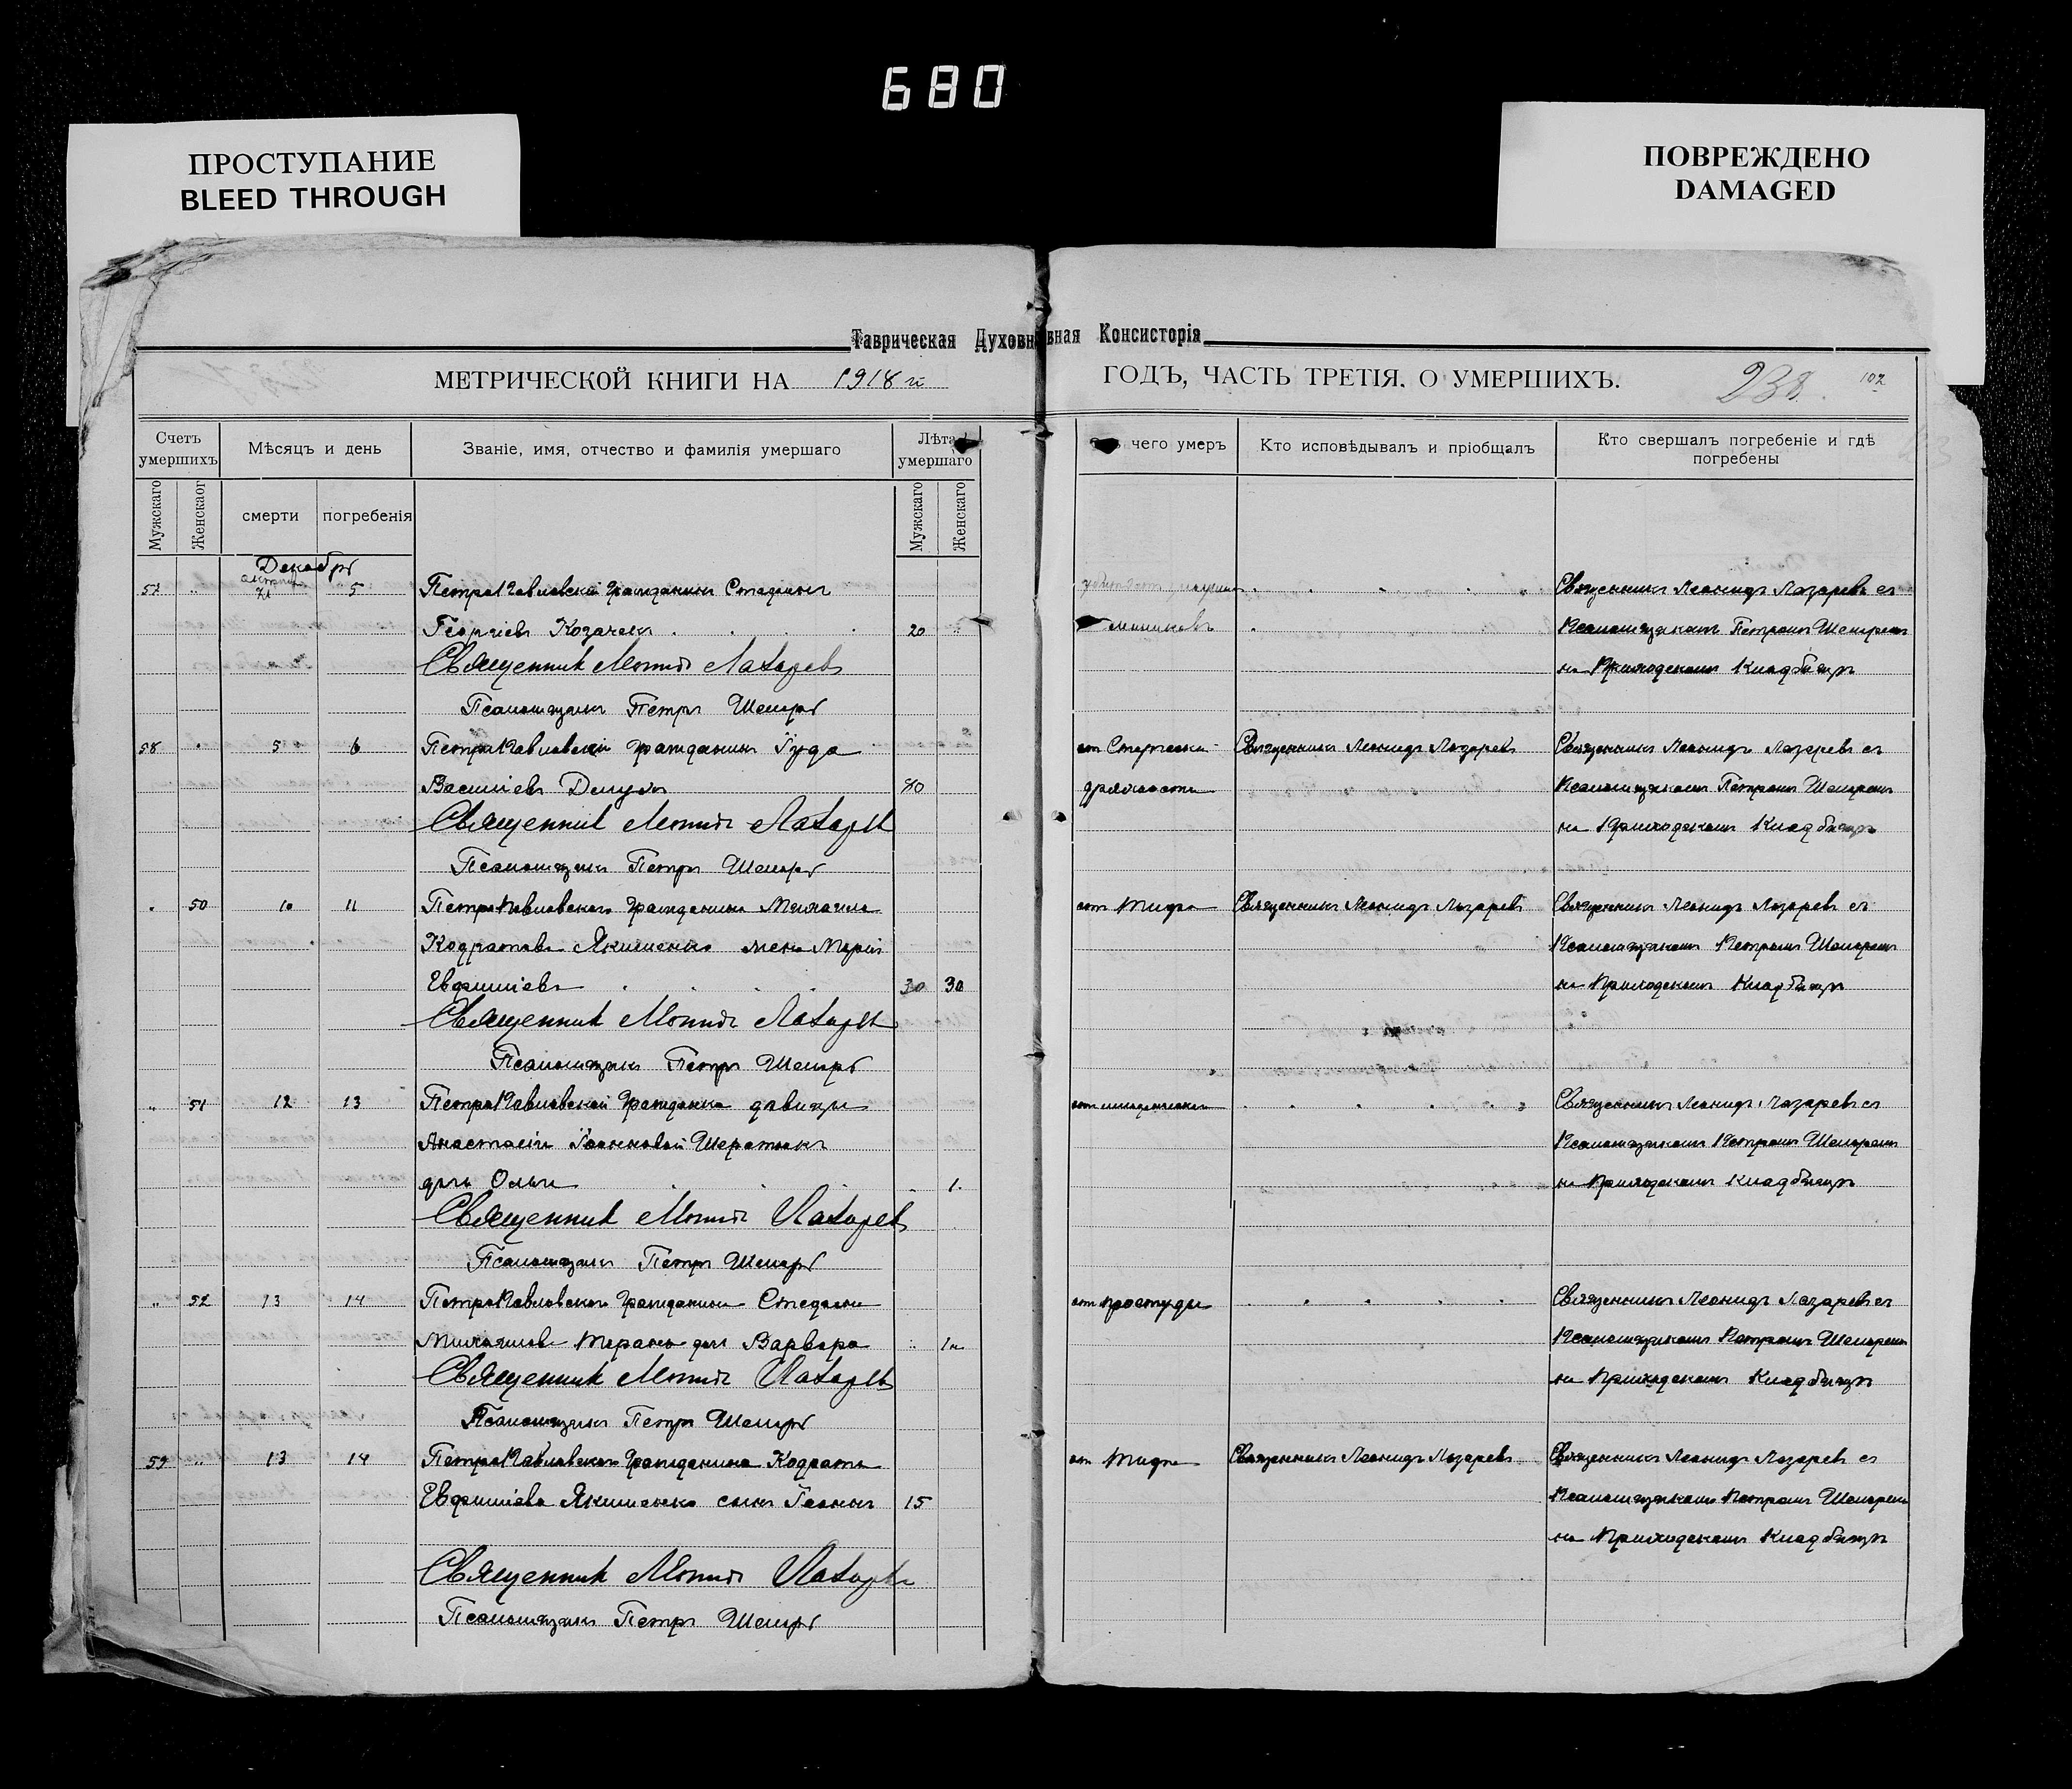 680
ПРОСТУПАНИЕ
BLEED THROUGH
ПОВРЕЖДЕНО
DAMAGED
Таврическая Духовная Консисторія
МЕТРИЧЕСКОЙ КНИГИ НА 1918 й ГОДЪ, ЧАСТЬ ТРЕТІЯ. О УМЕРШИХЪ.
238. 102
Счетъ умершихъ
Мѣсяцъ и день
Званіе, имя, отчество и фамилія умершаго
Лѣта умершаго
чего умеръ
Кто исповѣдывалъ и пріобщалъ
Кто свершалъ погребеніе и гдѣ погребены
Мужскаго
Женскаог
смерти
погребенія
Мужскаго
Женскаго
Декабрь
57 " 5 Петропавловскій Гражданинъ Стефанъ Священникъ Леонидъ Лазаревъ съ
Георгіевъ Козачекъ 20 Псаломщикомъ Петромъ
Священникъ Леонидъ Лазаревъ на Приходскомъ Кладбищѣ
Псаломщикъ Петръ
58 5 6 Петропавловскій Гражданинъ Іуда от Старческой Священникъ Леонидъ Лазаревъ Священникъ Леонидъ Лазаревъ съ
Василіевъ 80 дряхлости Псаломщикомъ Петромъ
Священникъ Леонидъ Лазаревъ на Приходскомъ Кладбищѣ
Псаломщикъ Петръ
50 10 11 Петропавловскаго Гражданина Михаила от Тифа Священникъ Леонидъ Лазаревъ Священникъ Леонидъ Лазаревъ съ
Кодратова Якименко жена Марія Псаломщикомъ Петромъ
Евфиміева 30 30 на Приходскомъ Кладбищѣ
Священникъ Леонидъ Лазаревъ
Псаломщикъ Петръ
" 51 12 13 Петропавловской Гражданки дѣвицы Священникъ Леонидъ Лазаревъ съ
Анастасіи Іоанновой Псаломщикомъ Петромъ
дочь Ольга 1 на Приходскомъ Кладбищѣ
Священникъ Леонидъ Лазаревъ
Псаломщикъ Петръ
" 52 13 14 Петропавловскаго Гражданина Стефана от простуды Священникъ Леонидъ Лазаревъ съ
Михаилова дочь Варвара Псаломщикомъ Петромъ
Священникъ Леонидъ Лазаревъ на Приходскомъ Кладбищѣ
Псаломщикъ Петръ
59 " 13 14 Петропавловскаго Гражданина Кодрата от Тифа Священникъ Леонидъ Лазаревъ Священникъ Леонидъ Лазаревъ съ
Евфиміева Якименко сынъ Іоаннъ 15 Псаломщикомъ Петромъ
на Приходскомъ Кладбищѣ
Священникъ Леонидъ Лазаревъ
Псаломщикъ Петръ